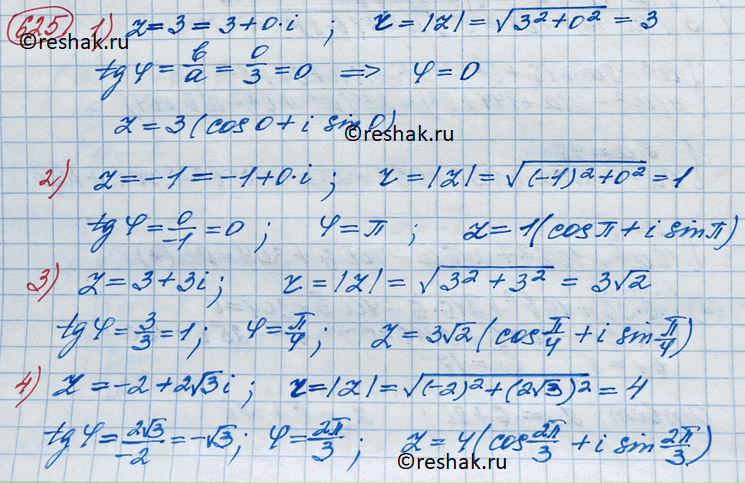 625 1) z=3=3+0·i ; r=|z|=√(3²+0²)=3
©reshak.ru
tgφ=b/a=0/3=0 ⟹ φ=0
z=3(cos0+i sin0)
©reshak.ru
2) z=-1=-1+0·i ; r=|z|=√((-1)²+0²)=1
tgφ=0/-1=0 ; φ=π ; z=1(cosπ+i sinπ)
3) z=3+3i ; r=|z|=√(3²+3²)=3√2
tgφ=3/3=1 ; φ=π/4 ; z=3√2(cosπ/4+i sinπ/4)
4) z=-2+2√3i ; r=|z|=√((-2)²+(2√3)²)=4
tgφ=2√3/-2=-√3 ; φ=2π/3 ; z=4(cos2π/3+i sin2π/3)
©reshak.ru